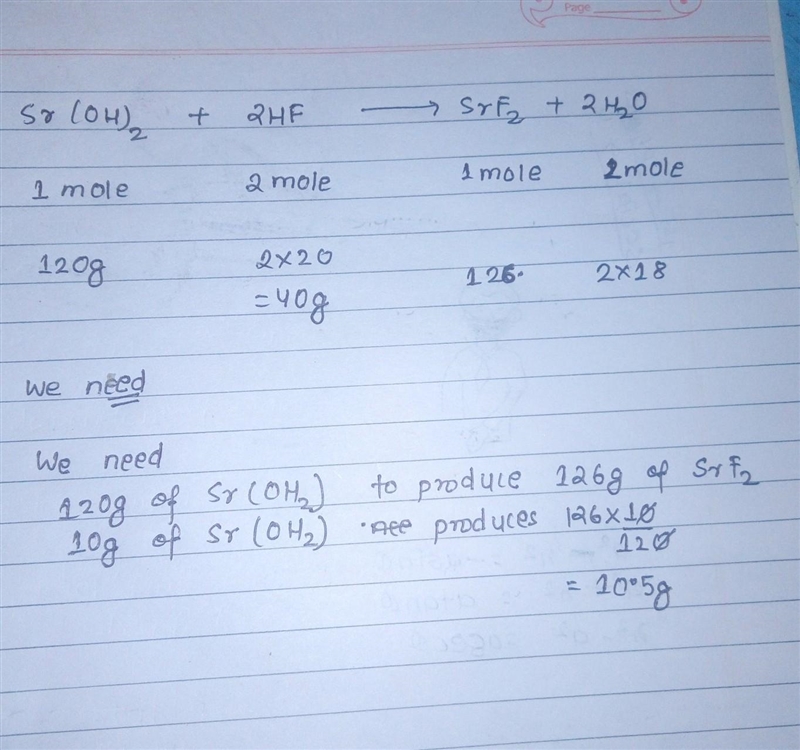 Page
Sr(OH)₂ + 2HF ⟶ SrF₂ + 2H₂O
1 mole 2 mole 1 mole 2mole
120g 2×20 126. 2×18
=40g
We need
We need
120g of Sr(OH₂) to produce 126g of SrF₂
10g of Sr(OH₂) produces 126×10
120
= 10.5g